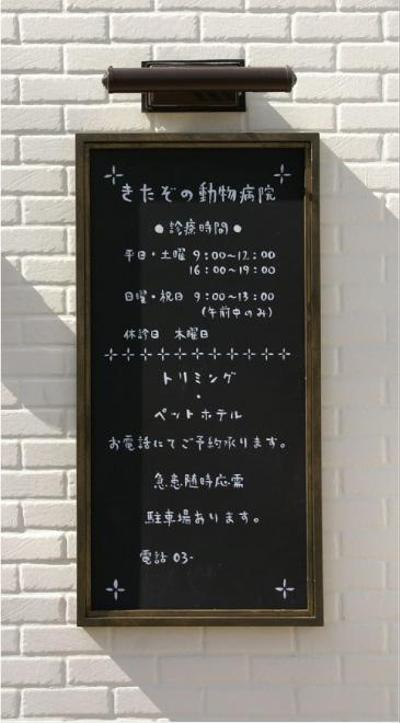 きたぞの動物病院
●診療時間●
平日・土曜 9:00〜12:00
16:00〜19:00
日曜・祝日 9:00〜13:00
(午前中のみ)
休診日 木曜日
トリミング
・
ペットホテル
お電話にてご予約承ります。
急患随時応需
駐車場あります。
電話 03-